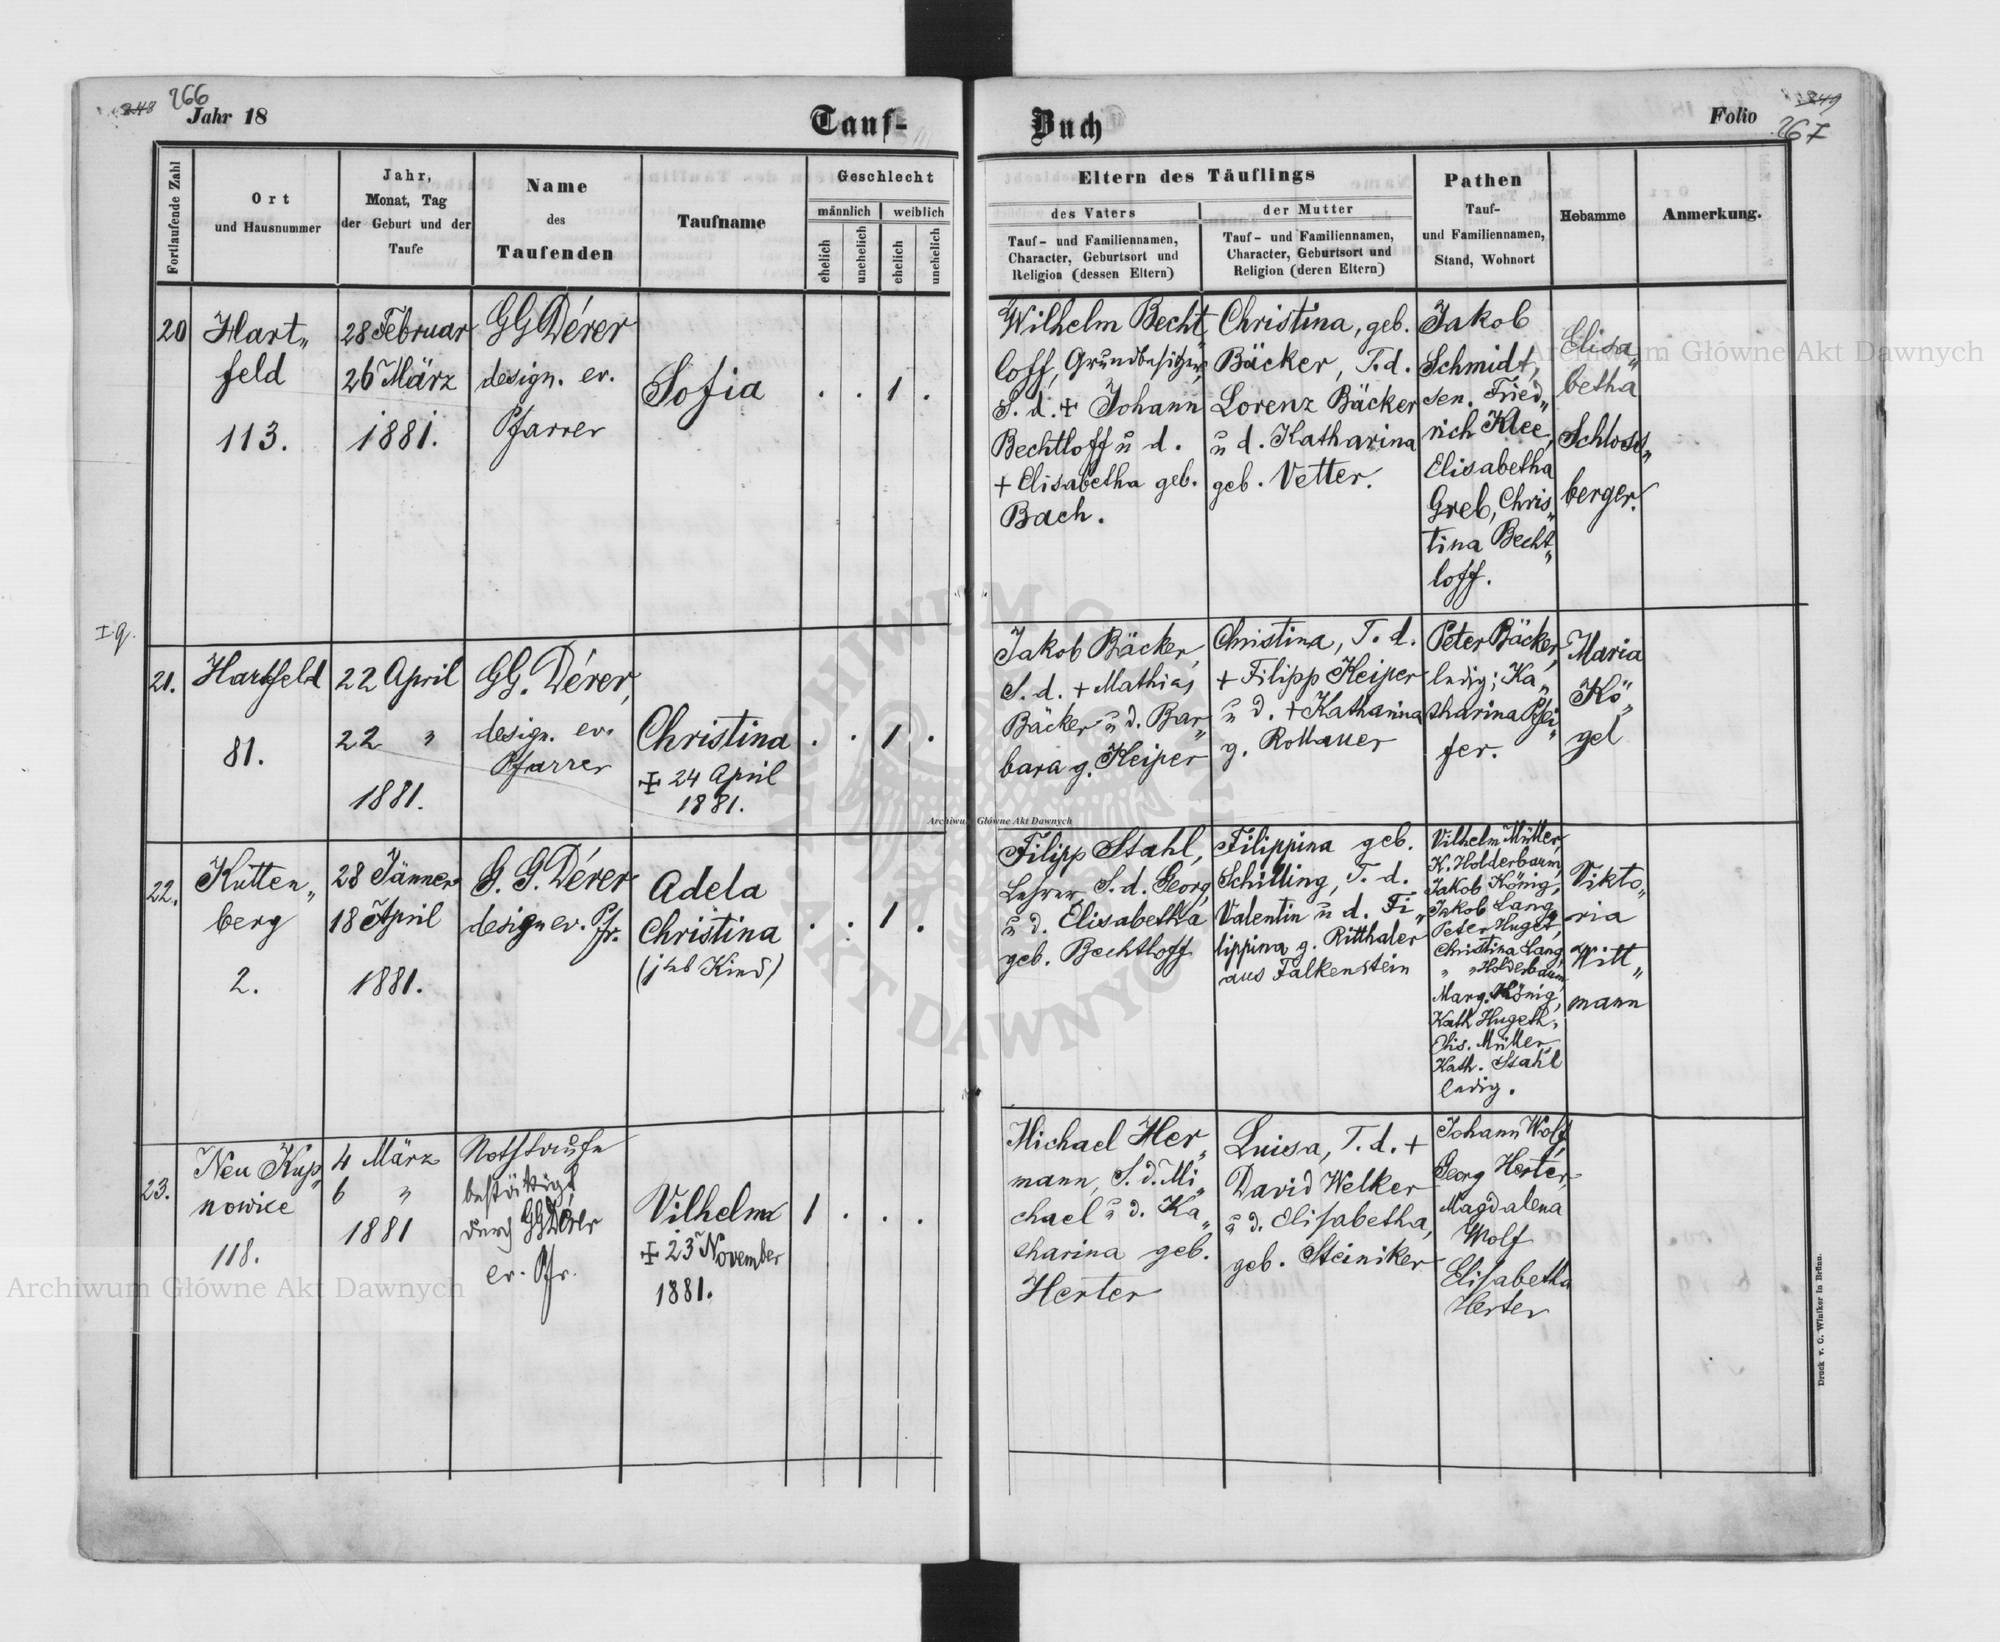 266
248
Jahr 18
Tauf-
Buch
Folio
249
267
Fortlaufende Zahl
Ort
und Hausnummer
Jahr,
Monat, Tag
der Geburt und der
Taufe
Name
des
Taufenden
Taufname
Geschlecht
männlich
weiblich
ehelich
unehelich
ehelich
unehelich
Eltern des Täuflings
des Vaters
Tauf- und Familiennamen,
Character, Geburtsort und
Religion (dessen Eltern)
der Mutter
Tauf- und Familiennamen,
Character, Geburtsort und
Religion (deren Eltern)
Pathen
Tauf-
und Familiennamen,
Stand, Wohnort
Hebamme
Anmerkung.
20
Hart„
feld
113.
28 Februar
26 März
1881.
GG Dérer
design. ev.
Pfarrer
Sofia
. . 1 .
Wilhelm Becht„
loff, Grundbesitzer,
S. d. + Johann
Bechtloff u d.
+ Elisabetha geb.
Bach.
Christina, geb.
Bäcker, T. d.
Lorenz Bäcker
u d. Katharina
geb. Vetter.
Jakob
Schmidt,
sen. Fried„
rich Klee,
Elisabetha
Greb, Chris„
tina Becht„
loff.
Elisa„
betha
Schloss„
berger.
I. q.
21.
Hartfeld
81.
22 April
22 „
1881.
GG. Dérer,
design. ev.
Pfarrer
Christina
+ 24 April
1881.
. . 1 .
Jakob Bäcker,
S. d. + Mathias
Bäcker u d. Bar„
bara g. Keiper
Christina, T. d.
+ Filipp Keiper
u d. + Katharina
g. Rollauer
Peter Bäcker,
ledig; Ka„
tharina Pfei„
fer.
Maria
Kö„
gel
22.
Kutten„
berg
2.
28 Jänner
18 April
1881.
G. G. Dérer
design ev. Pfr.
Adela
Christina
Kind)
. . 1 .
Filipp Stahl,
Lehrer, S. d. Georg
u d. Elisabetha
geb. Bechtloff
Filippina geb.
Schilling, T. d.
Valentin u d. Fi„
lippina g. Ritthaler
aus Falkenstein
Vilhelm Müller,
K. Holderbaum,
Jakob König,
Jakob Lang,
Peter Huget,
Christina Lang,
„ „ Holderbaum,
Marg. König,
Kath Hugeth,
Elis. Müller,
Kath. Stahl
ledig.
Vikto„
ria
Witt„
mann
23.
Neu Kup„
nowice
118.
4 März
6 „
1881
Nothtaufe
bestätigt
durch GG Dérer
ev. Pfr.
Vilhelm
+ 23 November
1881.
1 . . .
Michael Her„
mann, S. d. Mi„
chael u d. Ka„
tharina geb.
Herter
Luisa, T. d. +
David Welker
u d. Elisabetha,
geb. Steiniker
Johann Wolf,
Georg Herter,
Magdalena
Wolf
Elisabetha
Herter
Druck v. C. Winiker in Brünn.
Archiwum Główne Akt Dawnych
Archiwum Główne Akt Dawnych
Archiwum Główne Akt Dawnych
ARCHIWUM GŁÓWNE AKT DAWNYCH